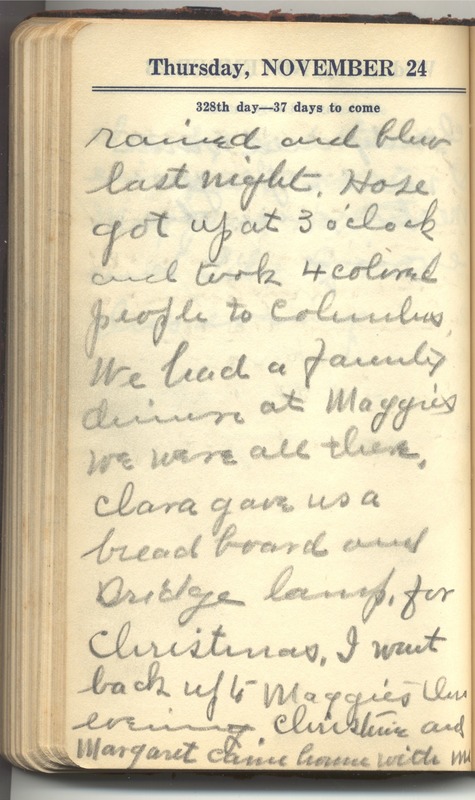 Thursday, NOVEMBER 24
328th day—37 days to come
rained and blew
last night. Hose
got up at 3 o'clock
and took 4 colored
people to Columbus.
We had a family
dinner at Maggies
we were all there.
Clara gave us a
bread board and
Bridge lamp, for
Christmas. I went
back up to Maggies this
evening. Christine and
Margaret came home with me